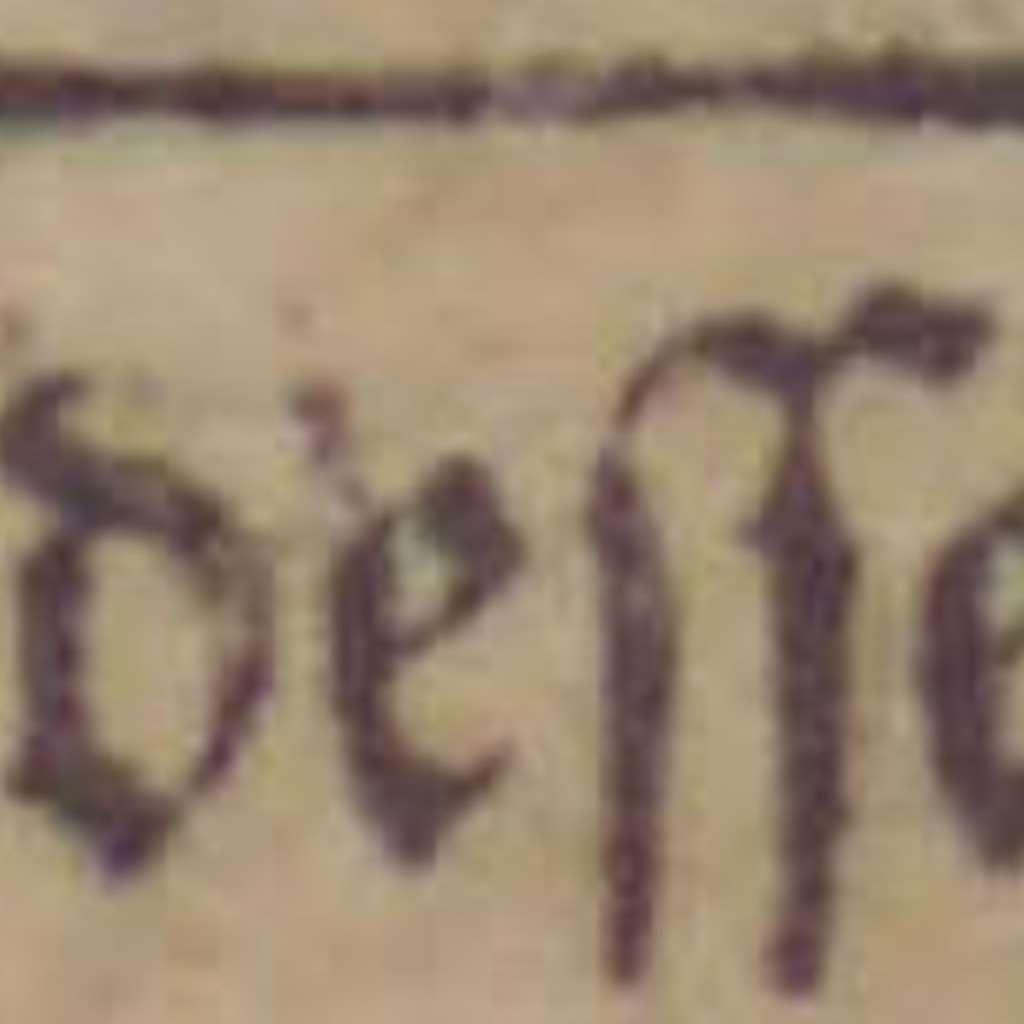 deſſe